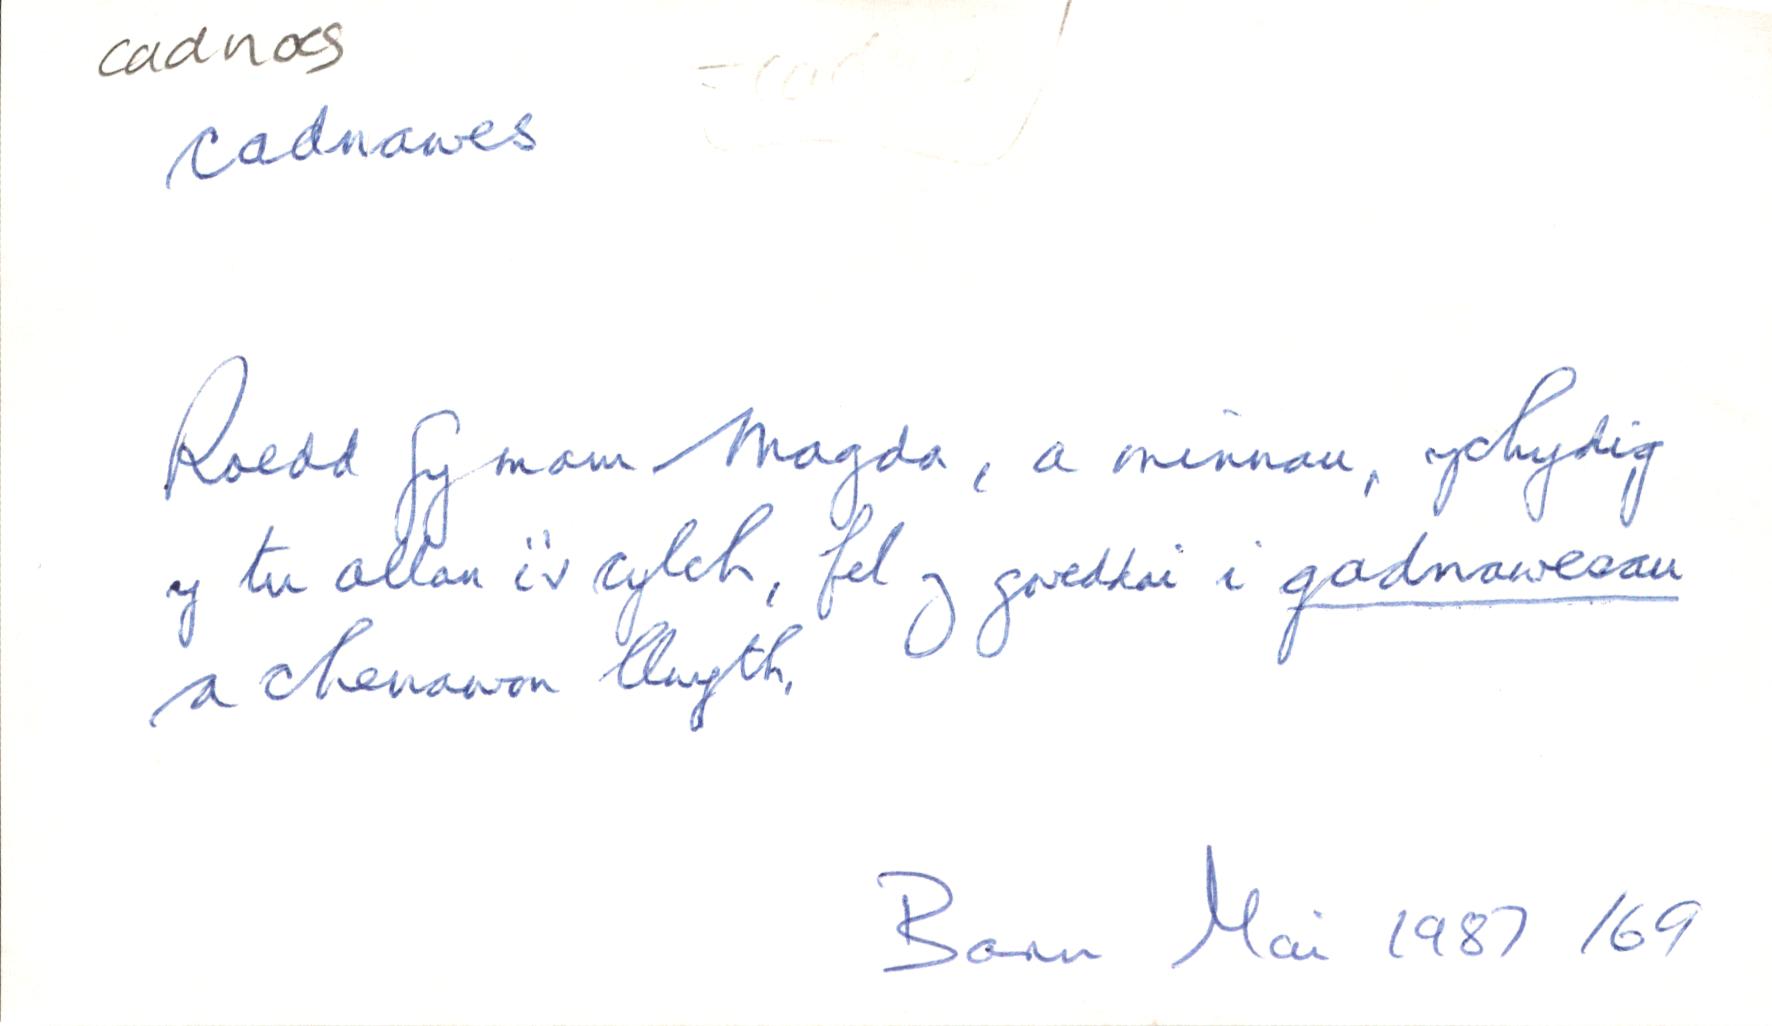 cadnoes
cadnawes
Roedd fy mam Magda, a minnau, ychydig
y tu allan i'r cylch, fel y gweddai i gadnawesau
a chenawon llwyth.
Barn Mai 1987 /69